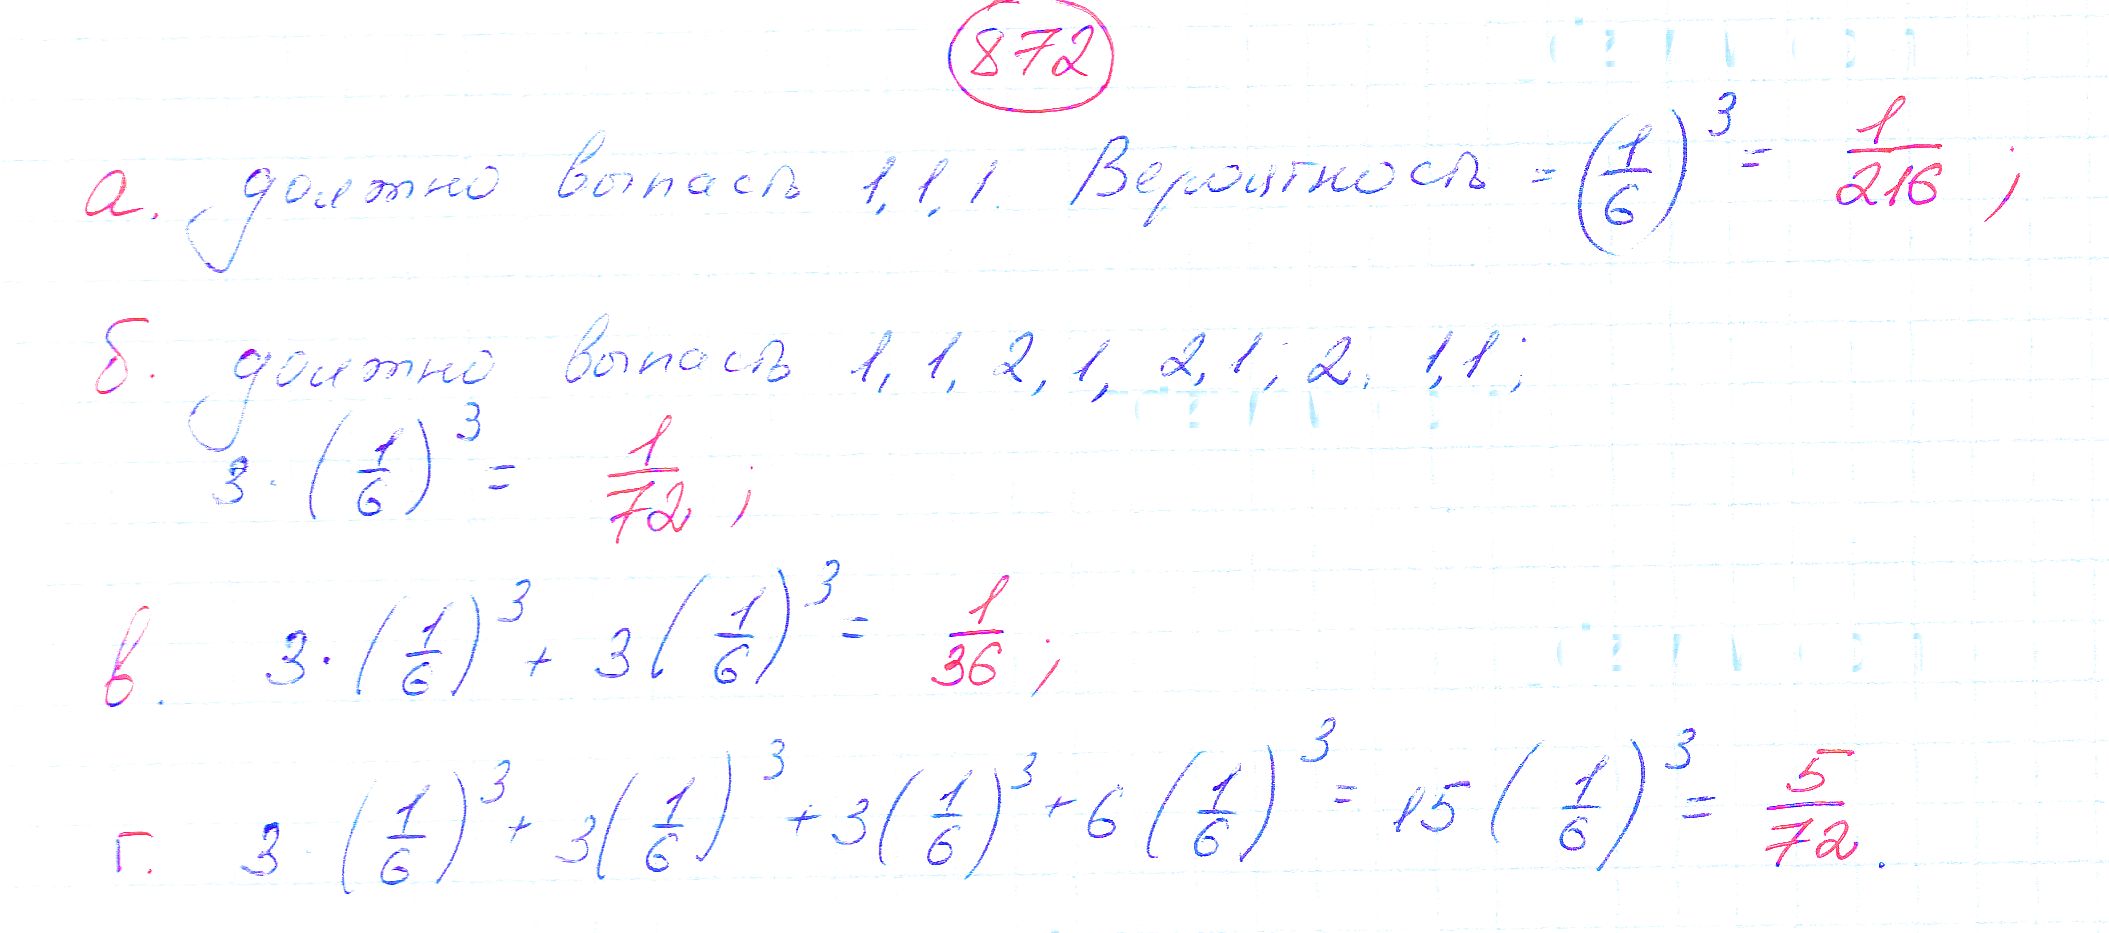 872
а. должно выпасть 1,1,1. Вероятность = (1/6)^3 = 1/216;
б. должно выпасть 1, 1, 2, 1, 2, 1; 2, 1,1;
3 · (1/6)^3 = 1/72;
в. 3 · (1/6)^3 + 3 (1/6)^3 = 1/36;
г. 3 · (1/6)^3 + 3 (1/6)^3 + 3 (1/6)^3 + 6 (1/6)^3 = 15 (1/6)^3 = 5/72.